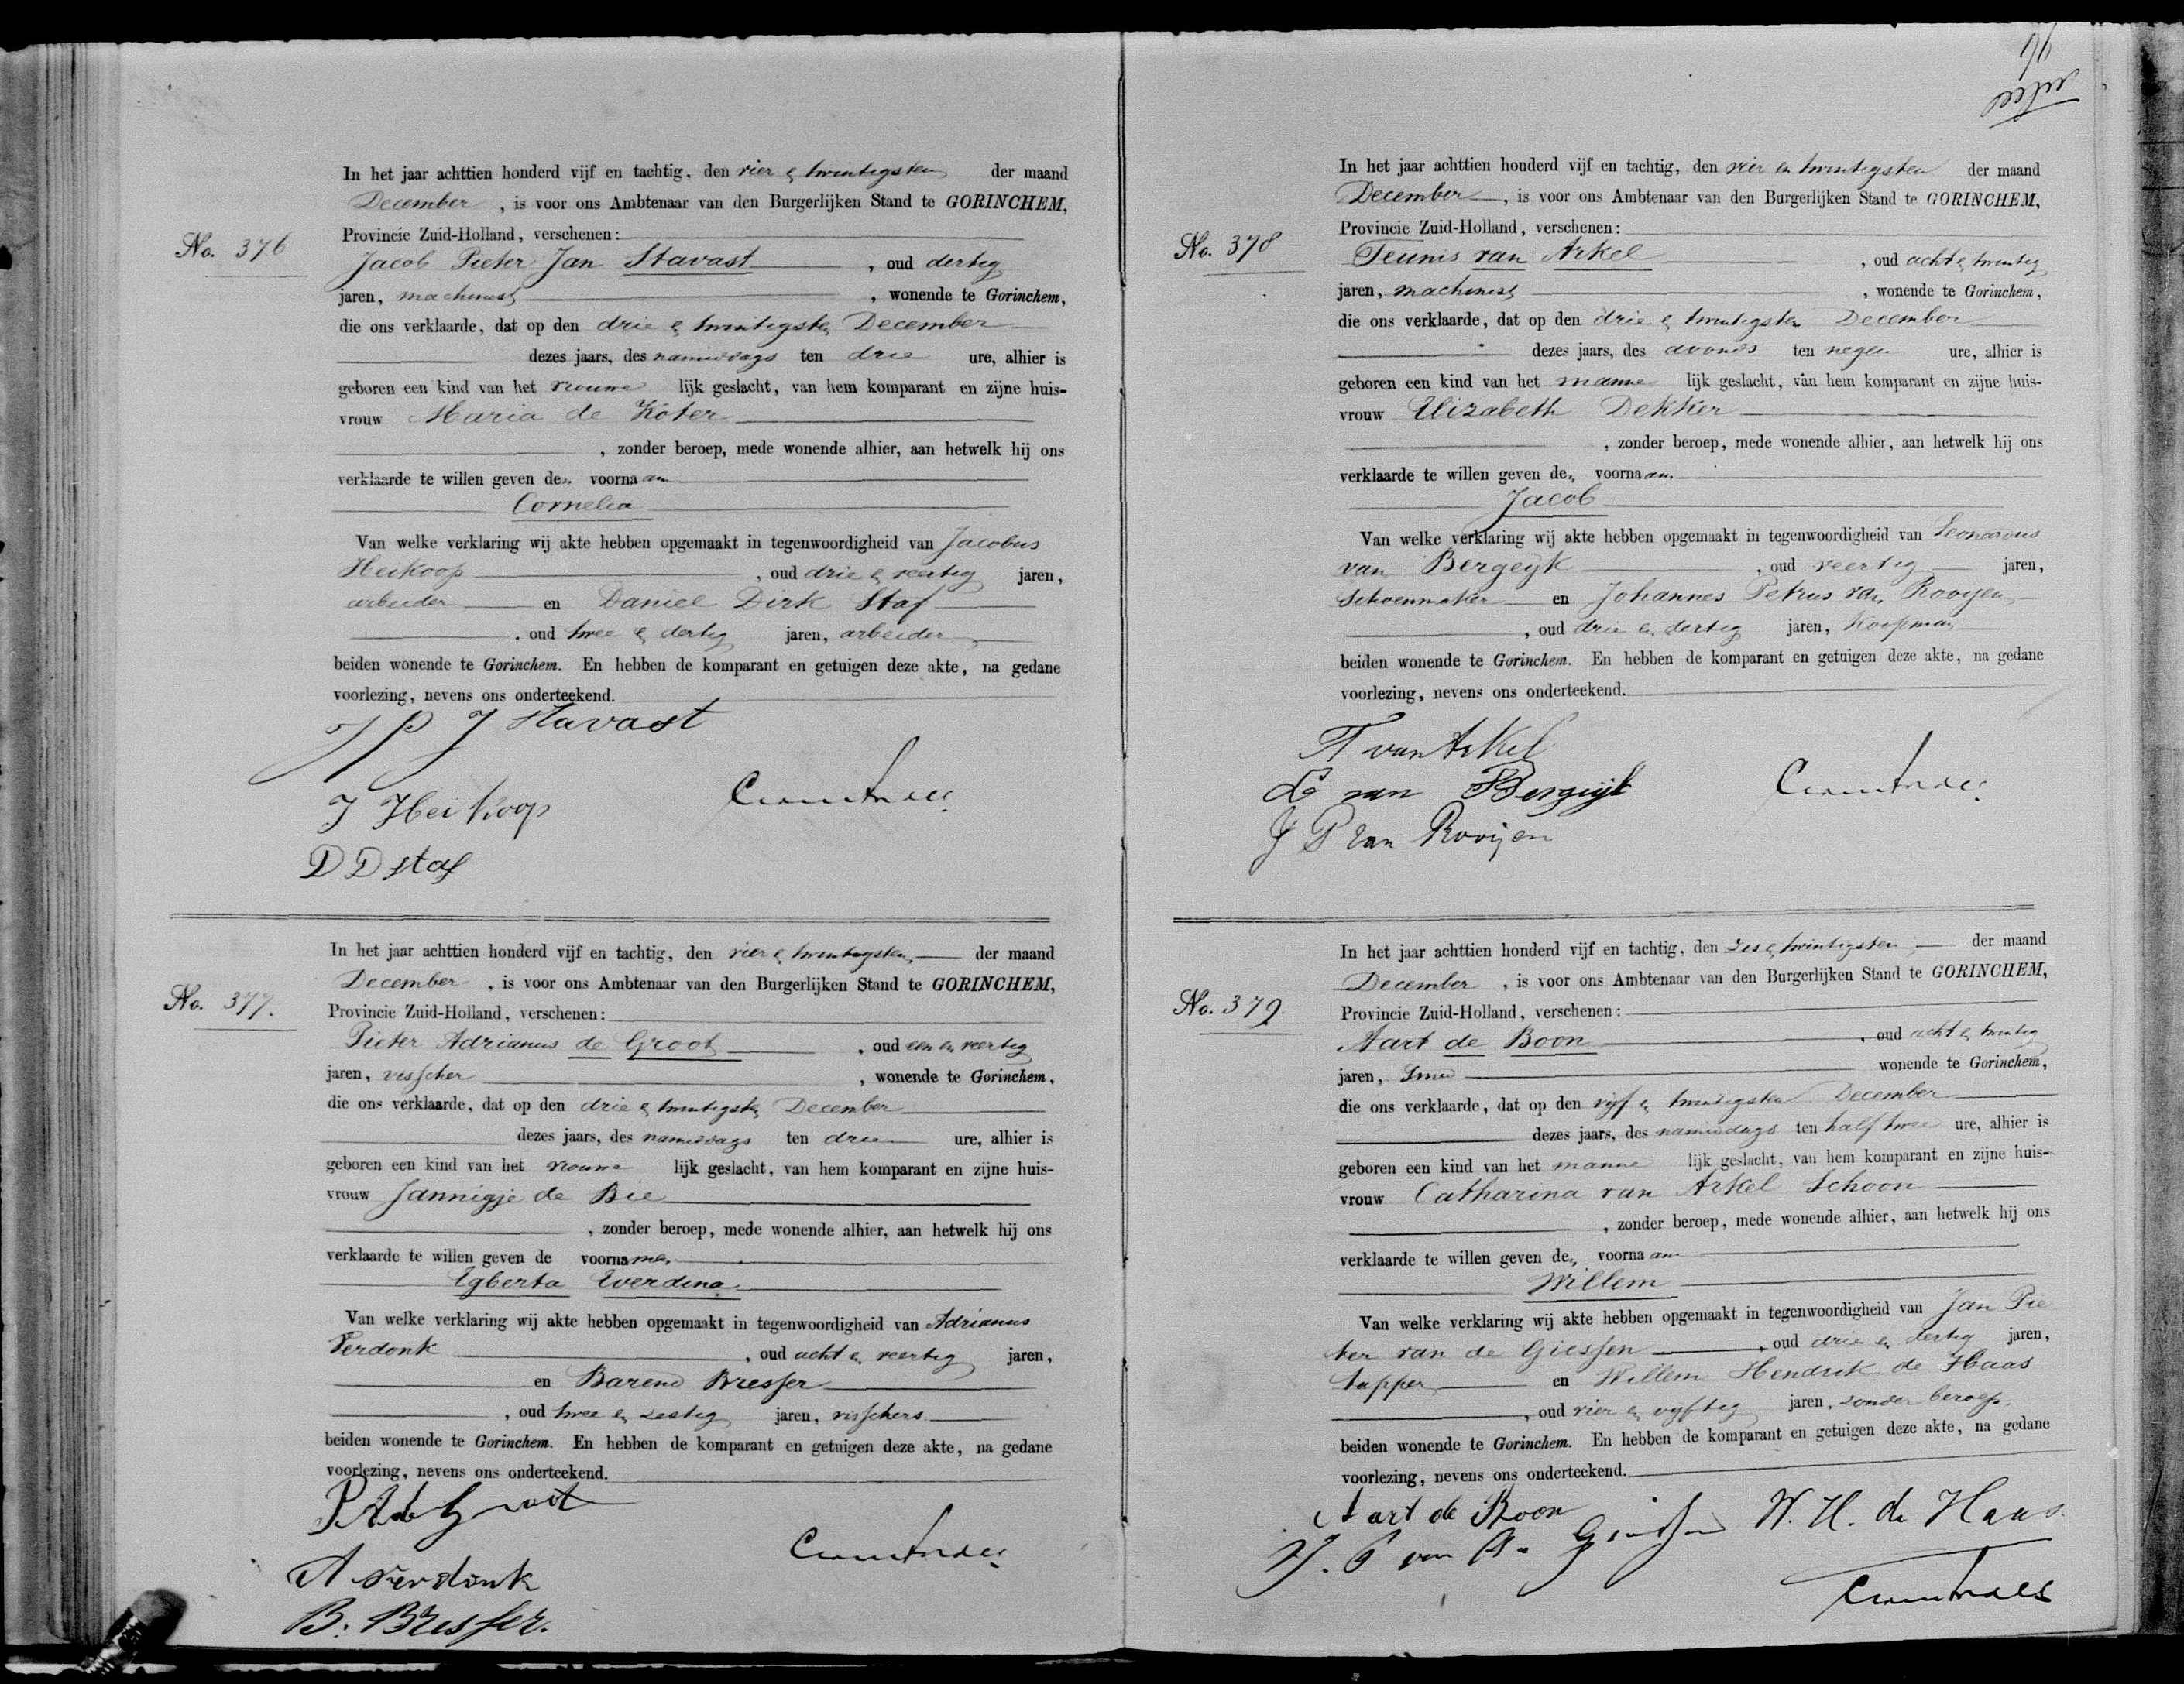 No. 376
In het jaar achttien honderd vijf en tachtig, den vier en twintigsten der maand
December, is voor ons Ambtenaar van den Burgerlijken Stand te GORINCHEM,
Provincie Zuid-Holland, verschenen:
Jacob Pieter Jan Stavast, oud dertig
jaren, machinist, wonende te Gorinchem,
die ons verklaarde, dat op den drie en twintigsten December
dezes jaars, des namiddags ten drie ure, alhier is
geboren een kind van het vrouwe lijk geslacht, van hem komparant en zijne huis-
vrouw Maria de Koter
, zonder beroep, mede wonende alhier, aan hetwelk hij ons
verklaarde te willen geven den voornaam
Cornelia
Van welke verklaring wij akte hebben opgemaakt in tegenwoordigheid van Jacobus
Heikoop, oud drie en veertig jaren,
arbeider en Daniel Dirk Staf
, oud twee en dertig jaren, arbeider
beiden wonende te Gorinchem. En hebben de komparant en getuigen deze akte, na gedane
voorlezing, nevens ons onderteekend.
J P J Stavast
J Heikoop
D D Staf
No. 377.
In het jaar achttien honderd vijf en tachtig, den vier en twintigsten der maand
December, is voor ons Ambtenaar van den Burgerlijken Stand te GORINCHEM,
Provincie Zuid-Holland, verschenen:
Pieter Adrianus de Groot, oud een en veertig
jaren, visscher, wonende te Gorinchem,
die ons verklaarde, dat op den drie en twintigsten December
dezes jaars, des namiddags ten drie ure, alhier is
geboren een kind van het vrouwe lijk geslacht, van hem komparant en zijne huis-
vrouw Jannigje de Bie
, zonder beroep, mede wonende alhier, aan hetwelk hij ons
verklaarde te willen geven de voornamen
Egberta Everdina
Van welke verklaring wij akte hebben opgemaakt in tegenwoordigheid van Adrianus
Verdonk, oud acht en veertig jaren,
en Barend Bresser
, oud twee en zestig jaren, visschers
beiden wonende te Gorinchem. En hebben de komparant en getuigen deze akte, na gedane
voorlezing, nevens ons onderteekend.
P A de Groot
A Verdonk
B. Bresser.
No. 378
In het jaar achttien honderd vijf en tachtig, den vier en twintigsten der maand
December, is voor ons Ambtenaar van den Burgerlijken Stand te GORINCHEM,
Provincie Zuid-Holland, verschenen:
Teunis van Arkel, oud acht en twintig
jaren, machinist, wonende te Gorinchem,
die ons verklaarde, dat op den drie en twintigsten December
dezes jaars, des avonds ten negen ure, alhier is
geboren een kind van het manne lijk geslacht, van hem komparant en zijne huis-
vrouw Elizabeth Dekker
, zonder beroep, mede wonende alhier, aan hetwelk hij ons
verklaarde te willen geven den voornaam
Jacob
Van welke verklaring wij akte hebben opgemaakt in tegenwoordigheid van Leonardus
van Bergeyk, oud veertig jaren,
Schoenmaker en Johannes Petrus van Rooyen
, oud drie en dertig jaren, koopman
beiden wonende te Gorinchem. En hebben de komparant en getuigen deze akte, na gedane
voorlezing, nevens ons onderteekend.
T van Arkel
L van Bergeijk
J P van Rooijen
No. 379.
In het jaar achttien honderd vijf en tachtig, den zes en twintigsten der maand
December, is voor ons Ambtenaar van den Burgerlijken Stand te GORINCHEM,
Provincie Zuid-Holland, verschenen:
Aart de Boon, oud acht en twintig
jaren, Smid wonende te Gorinchem,
die ons verklaarde, dat op den vyf en twintigsten December
dezes jaars, des namiddags ten half twee ure, alhier is
geboren een kind van het manne lijk geslacht, van hem komparant en zijne huis-
vrouw Catharina van Arkel Schoon
, zonder beroep, mede wonende alhier, aan hetwelk hij ons
verklaarde te willen geven den voornaam
Willem
Van welke verklaring wij akte hebben opgemaakt in tegenwoordigheid van Jan Pie
ter van de Giessen, oud drie en dertig jaren,
tapper en Willem Hendrik de Haas
, oud vier en vyftig jaren, zonder beroep.
beiden wonende te Gorinchem. En hebben de komparant en getuigen deze akte, na gedane
voorlezing, nevens ons onderteekend.
Aart de Boon
W. H. de Haas.
J. P van de Giessen